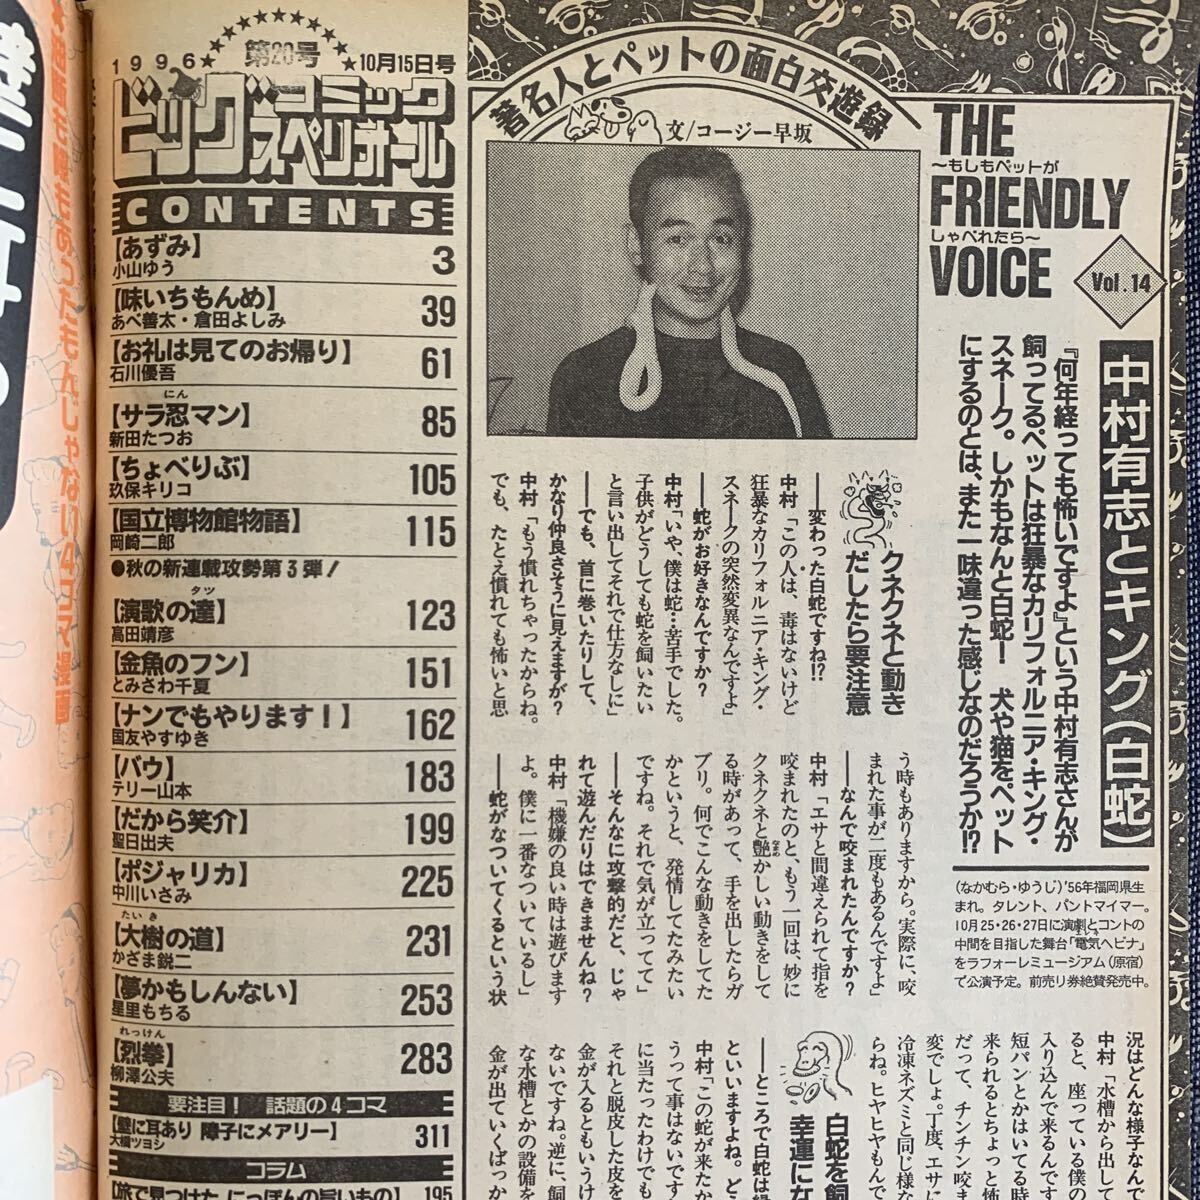 1996 第20号 10月15日号
ビッグコミックスペリオール
CONTENTS
【あずみ】
小山ゆう
3
【味いちもんめ】
あべ善太・倉田よしみ
39
【お礼は見てのお帰り】
石川優吾
61
【サラ忍マン】
にん
新田たつお
85
【ちょべりぶ】
玖保キリコ
105
【国立博物館物語】
岡崎二郎
115
●秋の新連載攻勢第3弾!
【演歌の達】
タツ
高田靖彦
123
【金魚のフン】
とみさわ千夏
151
【ナンでもやります!】
国友やすゆき
162
【バウ】
テリー山本
183
【だから笑介】
聖日出夫
199
【ポジャリカ】
中川いさみ
225
【大樹の道】
たいき
かざま鋭二
231
【夢かもしんない】
星里もちる
253
【烈拳】
れっけん
柳澤公夫
283
要注目! 話題の4コマ
【壁に耳あり 障子にメアリー】
大橋ツヨシ
311
コラム
【旅で見つけた にっぽんの旨いもの】 195
著名人とペットの面白交遊録
文/コージー早坂
THE
〜もしもペットが
FRIENDLY
しゃべれたら〜
VOICE
Vol.14
中村有志とキング(白蛇)
『何年経っても怖いですよ』という中村有志さんが
飼ってるペットは狂暴なカリフォルニア・キング・
スネーク。しかもなんと白蛇! 犬や猫をペット
にするのとは、また一味違った感じなのだろうか!?
(なかむら・ゆうじ)'56年福岡県生
まれ。タレント、パントマイマー。
10月25・26・27日に演劇とコントの
中間を目指した舞台「電気ヘビナ」
をラフォーレミュージアム(原宿)
で公演予定。前売り券絶賛発売中。
クネクネと動き
だしたら要注意
――変わった白蛇ですね!?
中村「この人は、毒はないけど
狂暴なカリフォルニア・キング・
スネークの突然変異なんですよ」
――蛇がお好きなんですか?
中村「いや、僕は蛇…苦手でした。
子供がどうしても蛇を飼いたい
と言い出してそれで仕方なしに」
――でも、首に巻いたりして、
かなり仲良さそうに見えますが?
中村「もう慣れちゃったからね。
でも、たとえ慣れても怖いと思
う時もありますから。実際に、咬
まれた事が二度もあるんですよ」
――なんで咬まれたんですか?
中村「エサと間違えられて指を
咬まれたのと、もう一回は、妙に
クネクネと艶かしい動きをして
なまめ
る時があって、手を出したらガ
ブリ。何でこんな動きをしてた
かというと、発情してたみたい
ですね。それで気が立ってて」
――そんなに攻撃的だと、じゃ
れて遊んだりはできませんね?
中村「機嫌の良い時は遊びます
よ。僕に一番なついているし」
――蛇がなついてくるという状
況はどんな様子なん
中村「水槽から出して
ると、座っている僕
入り込んで来るんです
短パンとかはいてる時
来られるとちょっと怖
だって、チンチン咬ま
変でしょ。丁度、エサに
冷凍ネズミと同じ様な
らね。ヒヤヒヤもんで
白蛇を飼
幸運にな
――ところで白蛇は縁
といいますよね。ど
中村「この蛇が来たか
うって事はないです
に当たったわけでも
それと脱皮した皮を
金が入るともいうけ
ないですね。逆に、飼
な水槽とかの設備を
金が出ていくばっか